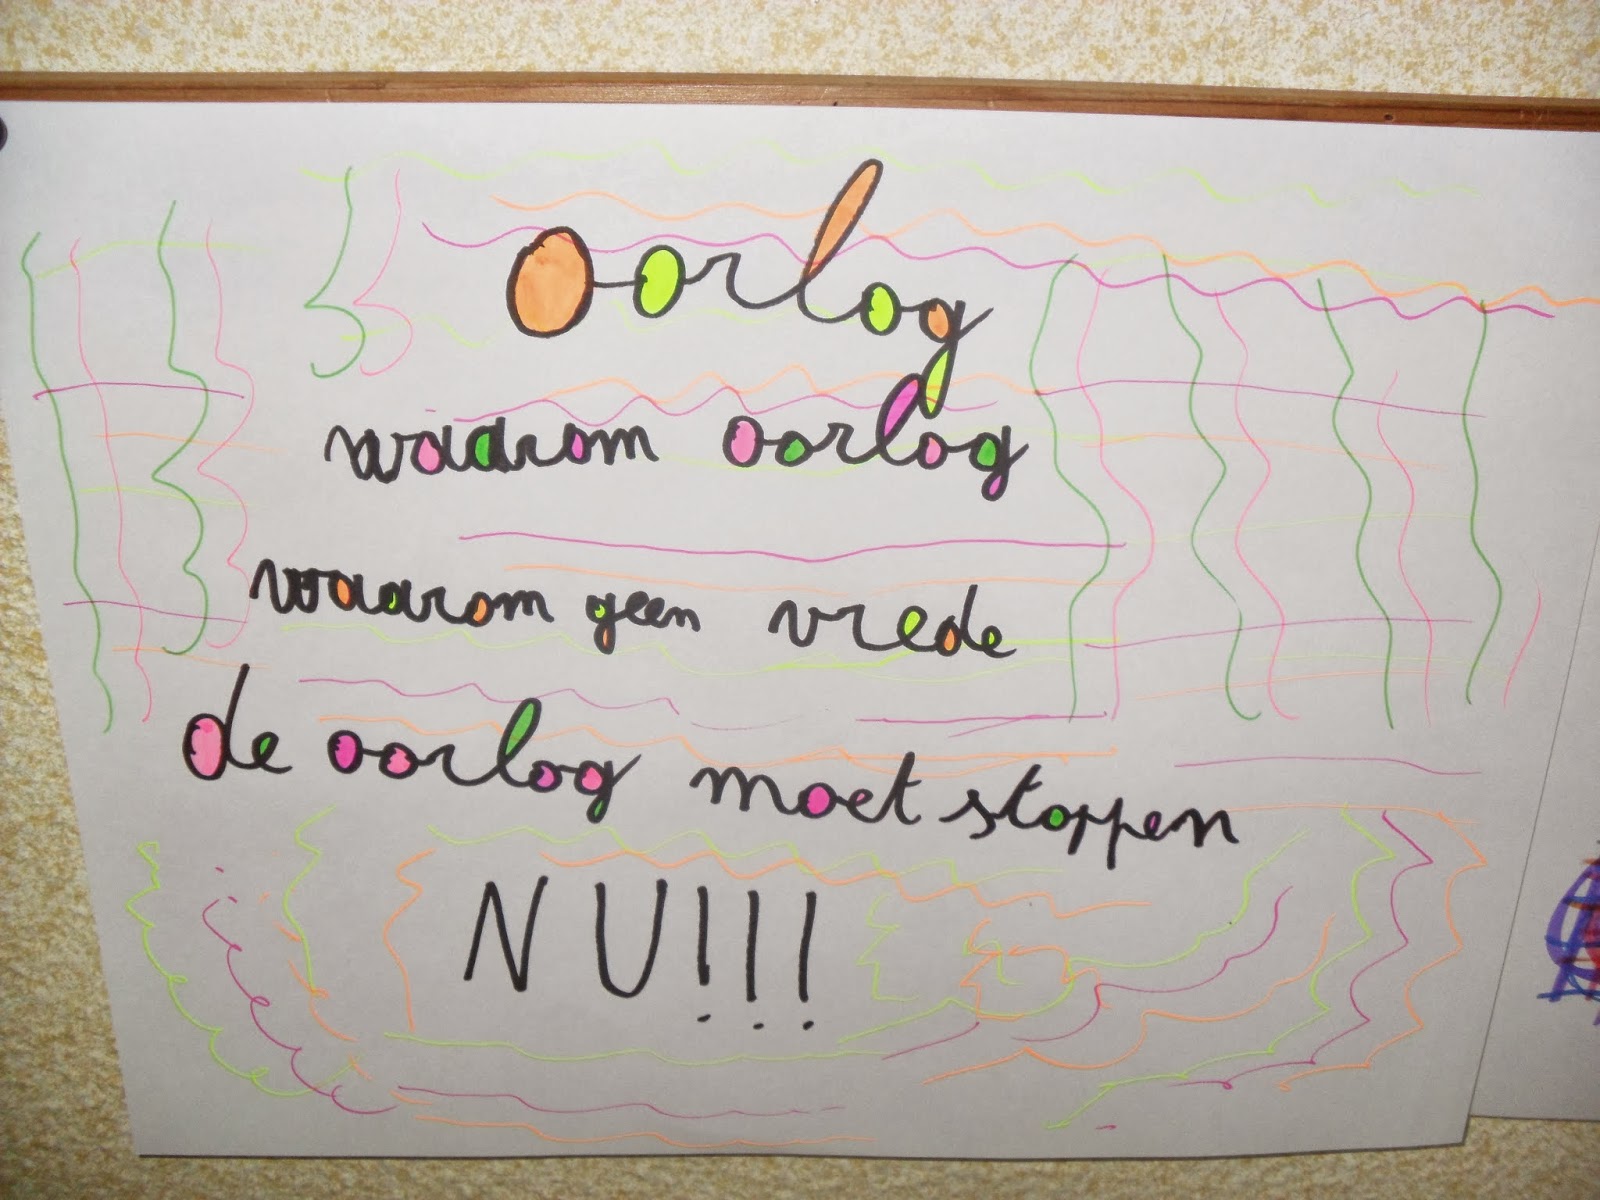 Oorlog
waarom oorlog
waarom geen vrede
de oorlog moet stoppen
NU!!!